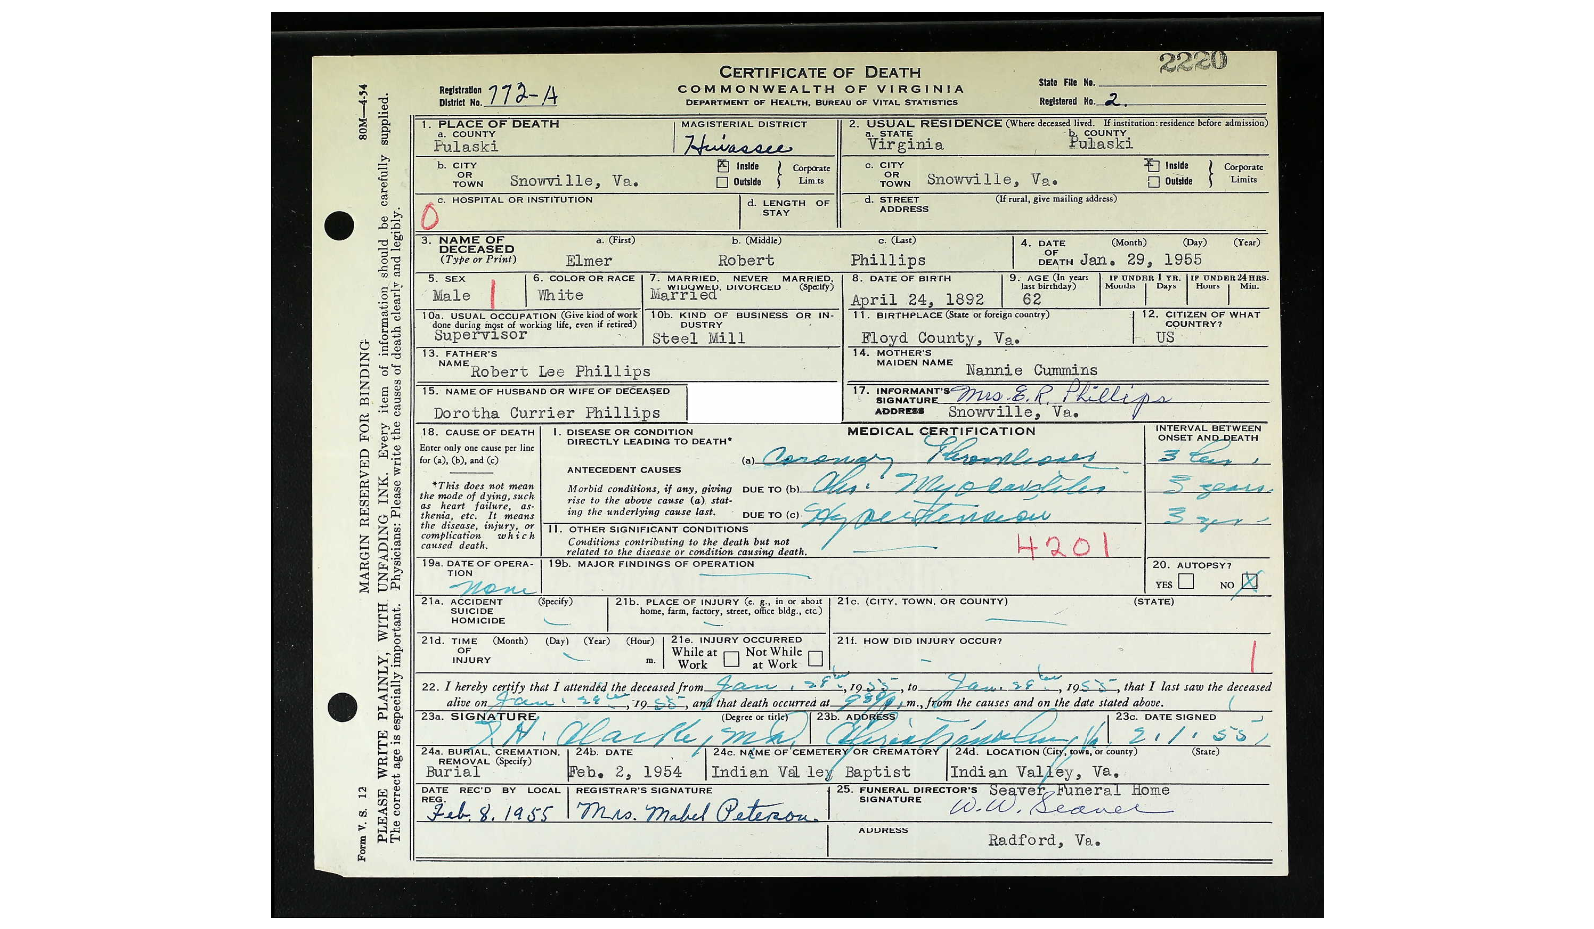 2220
CERTIFICATE OF DEATH
COMMONWEALTH OF VIRGINIA
DEPARTMENT OF HEALTH, BUREAU OF VITAL STATISTICS
Registration District No. 772-A
State File No.
Registered No. 2.
80M—4-54
MARGIN RESERVED FOR BINDING
Form V. S. 12
PLEASE WRITE PLAINLY, WITH UNFADING INK. Every item of information should be carefully supplied.
The correct age is especially important. Physicians: Please write the causes of death clearly and legibly.
1. PLACE OF DEATH
a. COUNTY
Pulaski
MAGISTERIAL DISTRICT
Hiwassee
2. USUAL RESIDENCE (Where deceased lived. If institution: residence before admission)
a. STATE
Virginia
b. COUNTY
Pulaski
b. CITY OR TOWN Snowville, Va.
X Inside
Outside
Corporate Limits
c. CITY OR TOWN Snowville, Va.
X Inside
Outside
Corporate Limits
c. HOSPITAL OR INSTITUTION
0
d. LENGTH OF STAY
d. STREET ADDRESS
(If rural, give mailing address)
3. NAME OF DECEASED
(Type or Print)
a. (First)
Elmer
b. (Middle)
Robert
c. (Last)
Phillips
4. DATE OF DEATH
(Month) (Day) (Year)
Jan. 29, 1955
5. SEX
Male
6. COLOR OR RACE
White
7. MARRIED, NEVER MARRIED, WIDOWED, DIVORCED (Specify)
Married
8. DATE OF BIRTH
April 24, 1892
9. AGE (In years last birthday)
62
IF UNDER 1 YR.
Months Days
IF UNDER 24 HRS.
Hours Min.
10a. USUAL OCCUPATION (Give kind of work done during most of working life, even if retired)
Supervisor
10b. KIND OF BUSINESS OR INDUSTRY
Steel Mill
11. BIRTHPLACE (State or foreign country)
Floyd County, Va.
12. CITIZEN OF WHAT COUNTRY?
US
13. FATHER'S NAME
Robert Lee Phillips
14. MOTHER'S MAIDEN NAME
Nannie Cummins
15. NAME OF HUSBAND OR WIFE OF DECEASED
Dorotha Currier Phillips
17. INFORMANT'S SIGNATURE Mrs. E. R. Phillips
ADDRESS Snowville, Va.
18. CAUSE OF DEATH
Enter only one cause per line for (a), (b), and (c)
*This does not mean the mode of dying, such as heart failure, asthenia, etc. It means the disease, injury, or complication which caused death.
MEDICAL CERTIFICATION
INTERVAL BETWEEN ONSET AND DEATH
I. DISEASE OR CONDITION DIRECTLY LEADING TO DEATH*
(a) Coronary Thrombosis
3
ANTECEDENT CAUSES
Morbid conditions, if any, giving rise to the above cause (a) stating the underlying cause last.
DUE TO (b) Chr. Myocarditis
3 years
DUE TO (c) Hypertension
3
II. OTHER SIGNIFICANT CONDITIONS
Conditions contributing to the death but not related to the disease or condition causing death.
4201
19a. DATE OF OPERATION
None
19b. MAJOR FINDINGS OF OPERATION
20. AUTOPSY?
YES NO X
21a. ACCIDENT SUICIDE HOMICIDE (Specify)
21b. PLACE OF INJURY (e. g., in or about home, farm, factory, street, office bldg., etc.)
21c. (CITY, TOWN, OR COUNTY) (STATE)
21d. TIME OF INJURY (Month) (Day) (Year) (Hour) m.
21e. INJURY OCCURRED
While at Work Not While at Work
21f. HOW DID INJURY OCCUR?
22. I hereby certify that I attended the deceased from Jan. 1955, to Jan. 1955, that I last saw the deceased
alive on Jan. 1955, and that death occurred at m., from the causes and on the date stated above.
23a. SIGNATURE (Degree or title)
Clarke, M.D.
23b. ADDRESS
Christiansburg Va
23c. DATE SIGNED
2.1.55
24a. BURIAL, CREMATION, REMOVAL (Specify)
Burial
24b. DATE
Feb. 2, 1954
24c. NAME OF CEMETERY OR CREMATORY
Indian Valley Baptist
24d. LOCATION (City, town, or county) (State)
Indian Valley, Va.
DATE REC'D BY LOCAL REG.
Feb. 8, 1955
REGISTRAR'S SIGNATURE
Mrs. Mabel Peterson
25. FUNERAL DIRECTOR'S SIGNATURE
Seaver Funeral Home
W. W. Seaver
ADDRESS
Radford, Va.